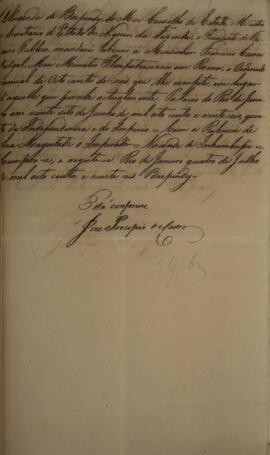 Visconde de Baependy, do Meu Conselho de Estado, Ministro
e Secretario d'Estado dos Negocios da Fazenda, e Presidente do The-
souro Publico, mandará abonar a Monsenhor Francisco Correa
Vidigal, Meu Ministro Plenipotenciario em Roma, o Ordenado
annual de Oito contos de reis que lhe compete, em lugar
d'aquelle que percebe actualmente. Palacio do Rio de Janei-
ro em vinte sete de Junho de mil oito centos e vinte seis, quin-
to da Independencia, e do Imperio = Com a Rubrica de
Sua Magestade o Imperador = Visconde de Inhambupe =
Cumpra-se, e registe-se. Rio de Janeiro quatro de Julho
de mil oito centos, e vinte seis = Baependy =
Está conforme
José Procopio de Castro
34 bis